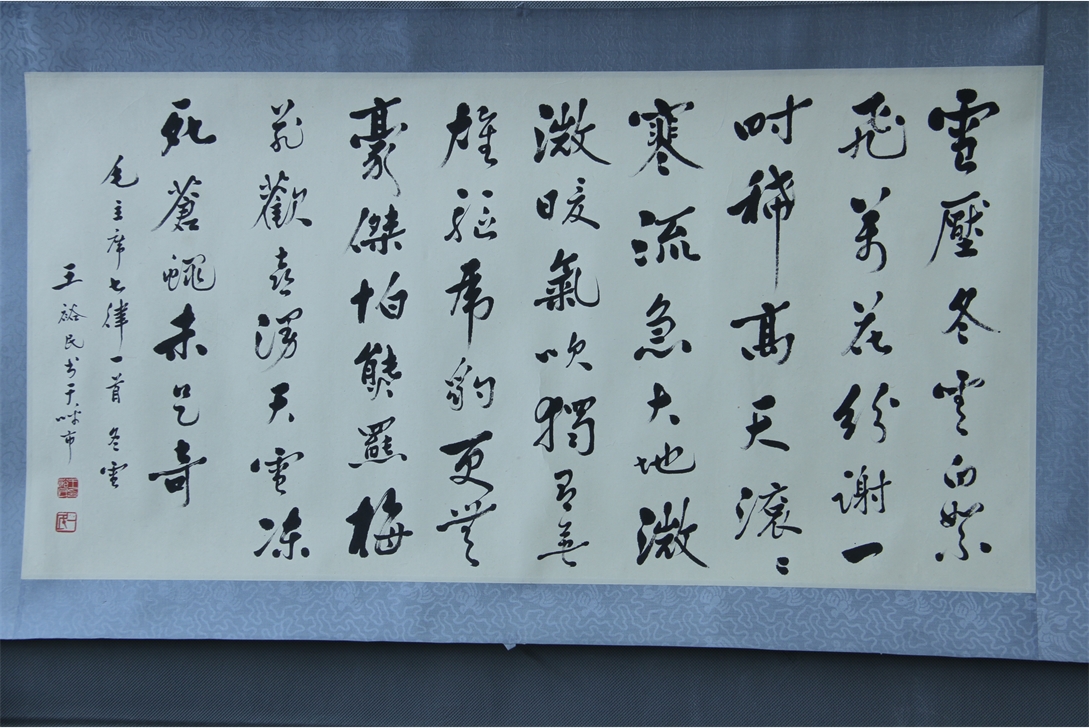 雪壓冬雲白絮
飛萬花紛謝一
时稀高天滾々
寒流急大地微
微暖氣吹獨有英
雄驅虎豹更無
豪傑怕熊羆梅
花歡喜漫天雪凍
死蒼蠅未足奇
毛主席七律一首 冬雲
王裕民书于呼市